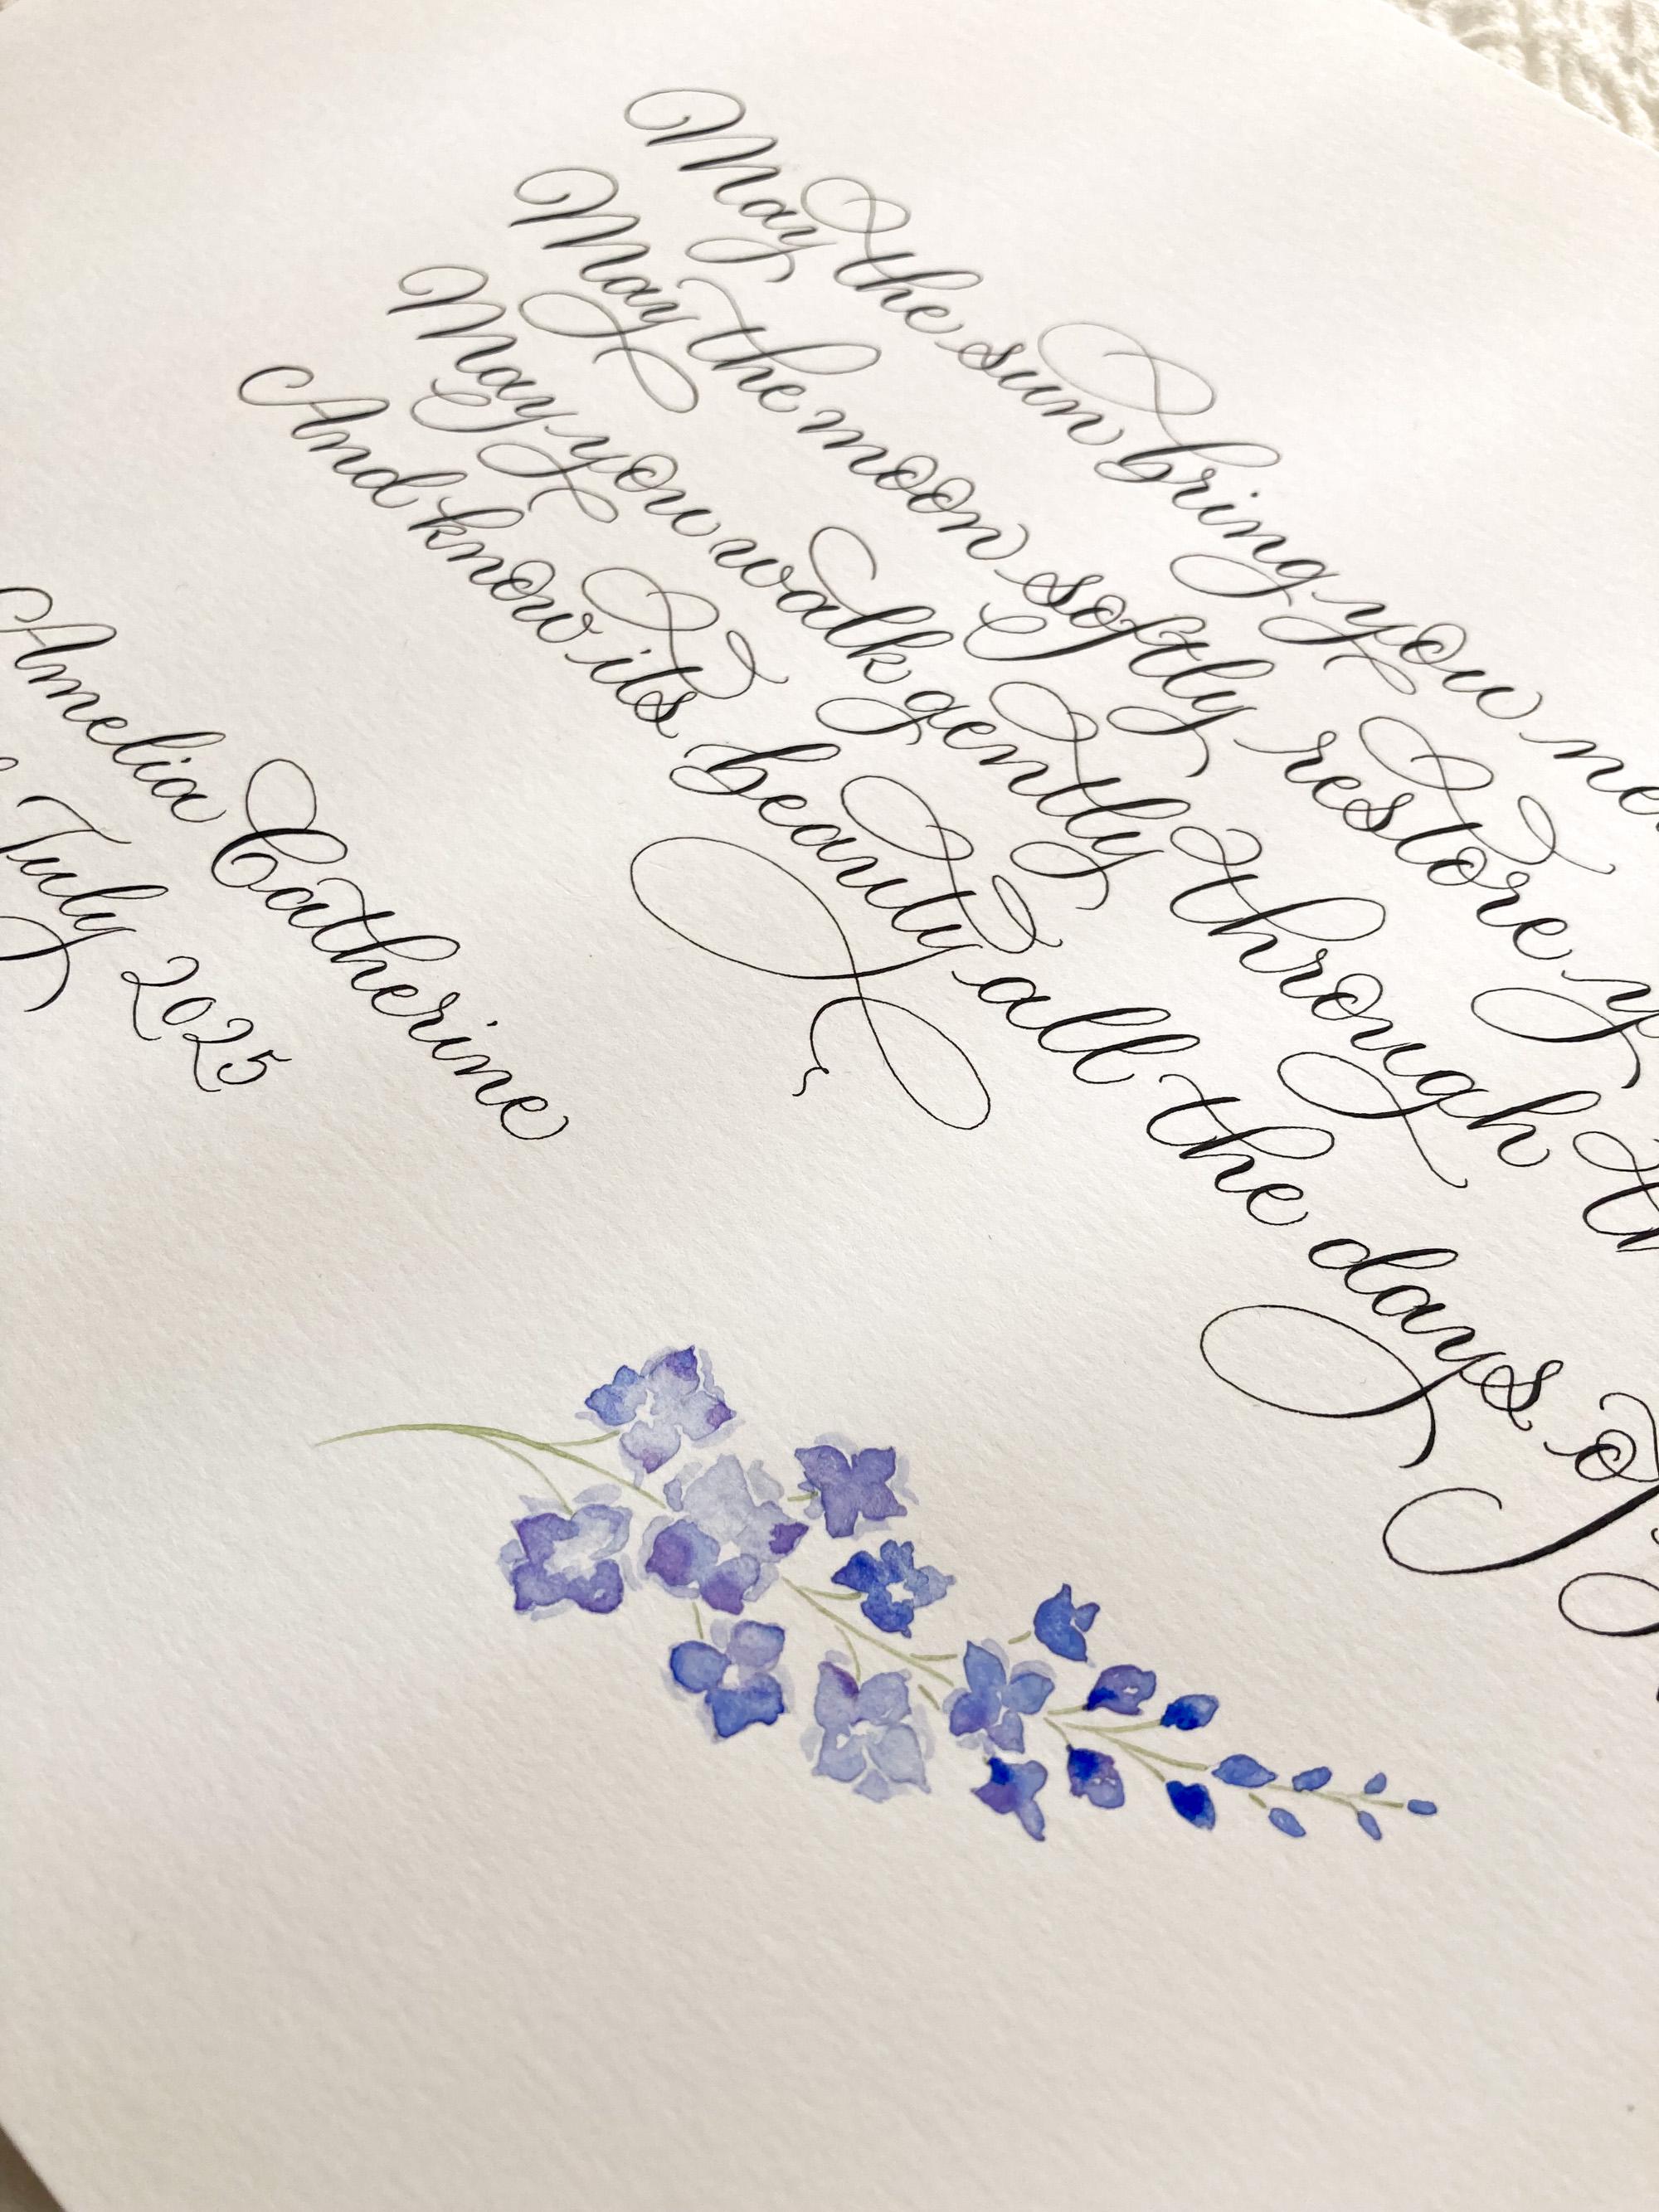 May the sun bring you
May the moon softly restore
May you walk gently through
And know its beauty all the days
Amelia Catherine
July 2025